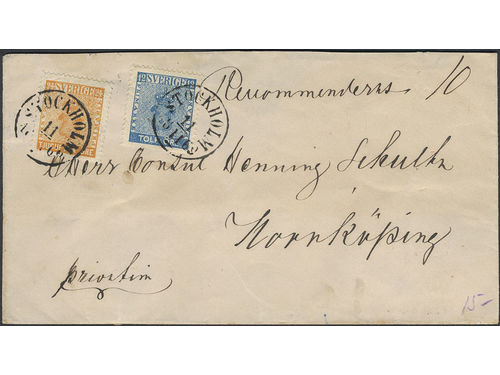 SVERIGE
12 SVERIGE 12
TOLF
STOCKHOLM
11
STOCKHOLM
Recommenderas 10
Herr Consul Henning Schultz
Norrköping
privatim
15-